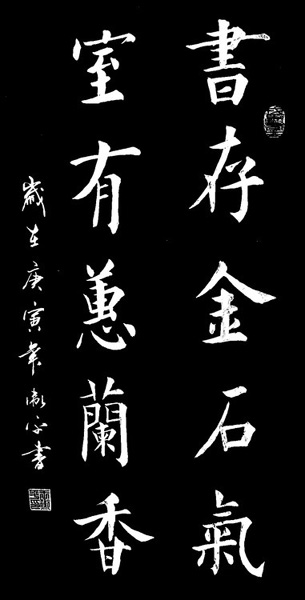 書存金石氣
室有蕙蘭香
歲在庚寅年衛平書